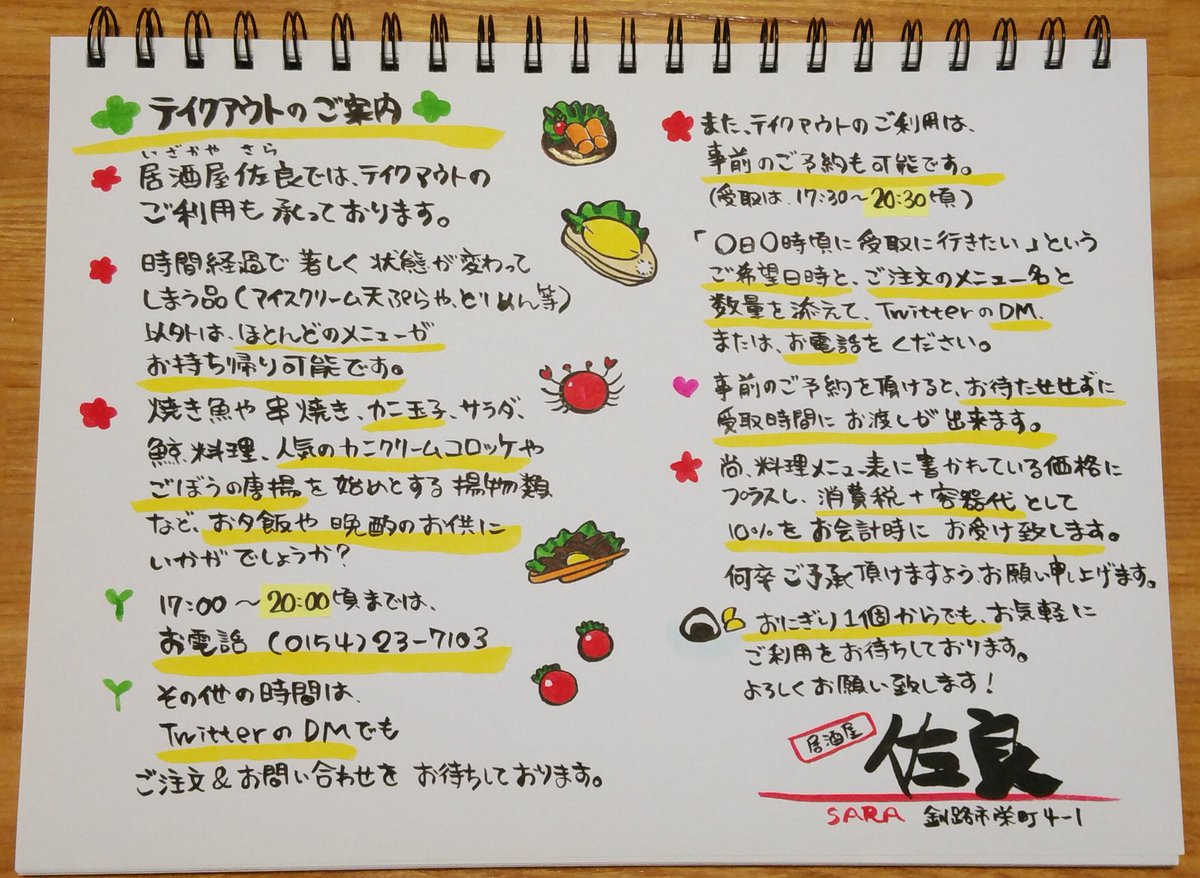 テイクアウトのご案内
いざかや さら
居酒屋佐良では、テイクアウトの
ご利用も承っております。
時間経過で著しく状態が変わって
しまう品(アイスクリーム天ぷらや、とりめん等)
以外は、ほとんどのメニューが
お持ち帰り可能です。
焼き魚や串焼き、カニ玉子、サラダ、
鯨料理、人気のカニクリームコロッケや
ごぼうの唐揚を始めとする揚物類
など、お夕飯や晩酌のお供に
いかがでしょうか?
17:00〜20:00頃までは、
お電話(0154)23-7103
その他の時間は、
TwitterのDMでも
ご注文&お問い合わせをお待ちしております。
また、テイクアウトのご利用は、
事前のご予約も可能です。
(受取は、17:30〜20:30頃)
「〇日〇時頃に受取に行きたい」という
ご希望日時と、ご注文のメニュー名と
数量を添えて、TwitterのDM、
または、お電話をください。
事前のご予約を頂けると、お待たせせずに
受取時間にお渡しが出来ます。
尚、料理メニュー表に書かれている価格に
プラスし、消費税+容器代として
10%をお会計時にお受け致します。
何卒ご了承頂けますようお願い申し上げます。
おにぎり1個からでも、お気軽に
ご利用をお待ちしております。
よろしくお願い致します!
居酒屋 佐良
SARA 釧路市栄町4-1